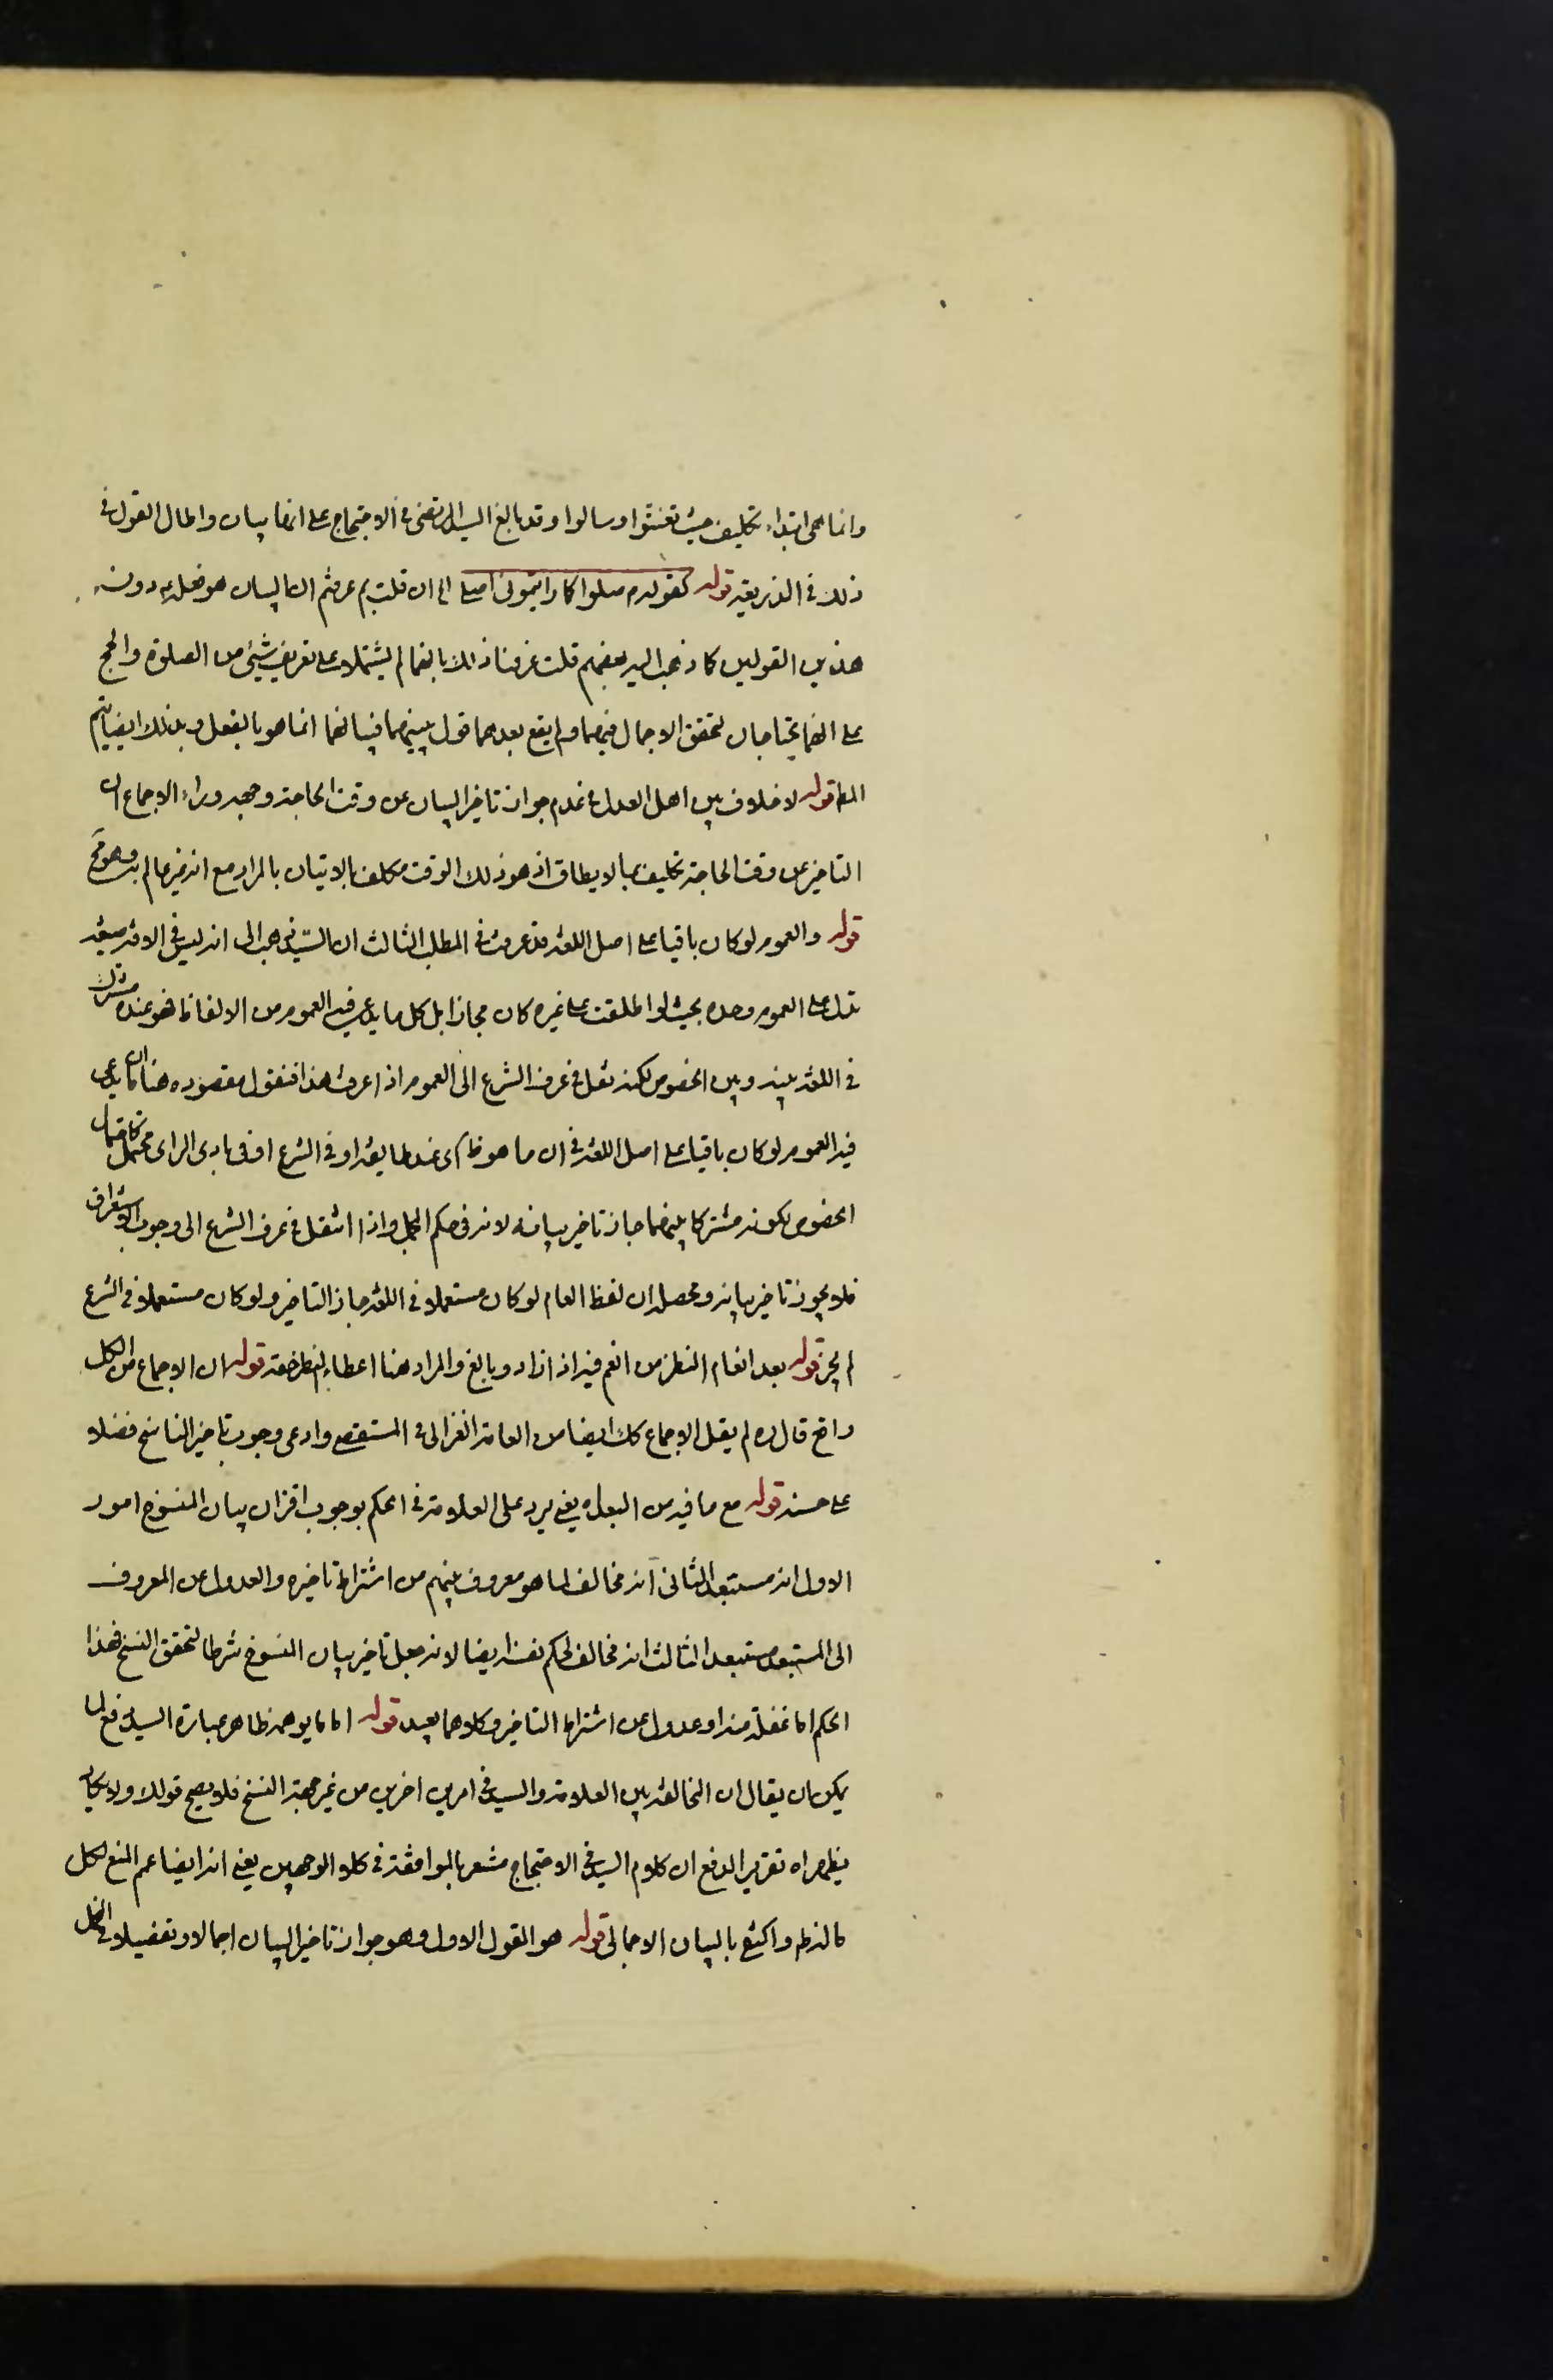 وانما هي ابتداء تكليف حيث تعنتوا وسالوا وقد بالغ السيد المرتضى في الاحتجاج على انها بيان واطال القول في
ذلك في الذريعة قوله كقوله م صلوا كما رايتموني اصلي الى ان قلت بم عرفتم ان البيان هو فعله دون
هذين القولين كما ذهب اليه بعضهم قلت عرفنا ذلك بانهما لم يشتملا على تعريف شيئ من الصلوة والحج
على انهما يحتاجان لتحقق الاجمال فيهما ولم يقع بعدهما قول يبينهما فبيانهما انما هو بالفعل وبذلك ايضا يتم
المط قوله لا خلاف بين اهل العدل في عدم جواز تاخير البيان عن وقت الحاجة وجهه وراء الاجماع ان
التاخير عن وقت الحاجة تكليف بما لا يطاق اذ هو ذلك الوقت مكلف بالاتيان بالمراد مع انه غير عالم به وهو مح
قوله والعموم لو كان باقيا على اصل اللغة قد عرفت في المطلب الثالث ان السيد ذهب الى انه ليس في اللغة صيغة
تدل على العموم وحده بحيث لو اطلقت على غيره كان مجازا بل كل ما يدعى فيه العموم من الالفاظ فهو عنده مشترك
في اللغة بينه وبين الخصوص لكنه نقل في عرف الشرع الى العموم اذا عرفت هذا فنقول مقصوده هنا ان ما يدعى
فيه العموم لو كان باقيا على اصل اللغة في ان ما هو ظاهره عند طايفة او في الشرع او في بادى الراى محتمل كاحتمال
الخصوص لكونه مشتركا بينهما جاز تاخير بيانه لانه في حكم المجمل واذا انتقل في عرف الشرع الى وجوب الاستغراق
فلا يجوز تاخير بيانه ومحصله ان لفظ العام لو كان مستعملا في اللغة جاز التاخير ولو كان مستعملا في الشرع
لم يجز قوله بعد انعام النظر من انعم فيه اذا زاد وبالغ والمراد هنا اعطاء النظر حقه قوله ان الاجماع من الكل
واقع قال ره لم يقل الاجماع كك ايضا من العامة الغزالى في المستقصى وادعى وجوب تاخير الناسخ فضلا
على حسنه قوله مع ما فيه من البعد ه يعني يرد على العلامة في الحكم بوجوب اقتران بيان المنسوخ امور
الاول انه مستبعد الثانى انه مخالف لما هو معروف بينهم من اشتراط تاخيره والعدول عن المعروف
الى المستبعد مستبعد الثالث انه مخالف لحكم نفسه ايضا لانه جعل تاخير بيان المنسوخ شرطا لتحقق النسخ فهذا
الحكم اما غفلة منه او عدول عن اشتراط التاخير وكلاهما بعيد قوله اما ما يوهمه ظاهر عبارة السيد دفع لما
يمكن ان يقال ان المخالفة بين العلامة والسيد في امرين اخرين من غير جهة النسخ فلا يصح قولك ولا يكاد
يظهر اه تقرير الدفع ان كلام السيد في الاحتجاج مشعر بالموافقة في كلا الوجهين يعني انه ايضا عم المنع لكل
ماله ظ واكتفى بالبيان الاجمالي قوله هو القول الاول وهو جواز تاخير البيان اجمالا وتفصيلا في الكل